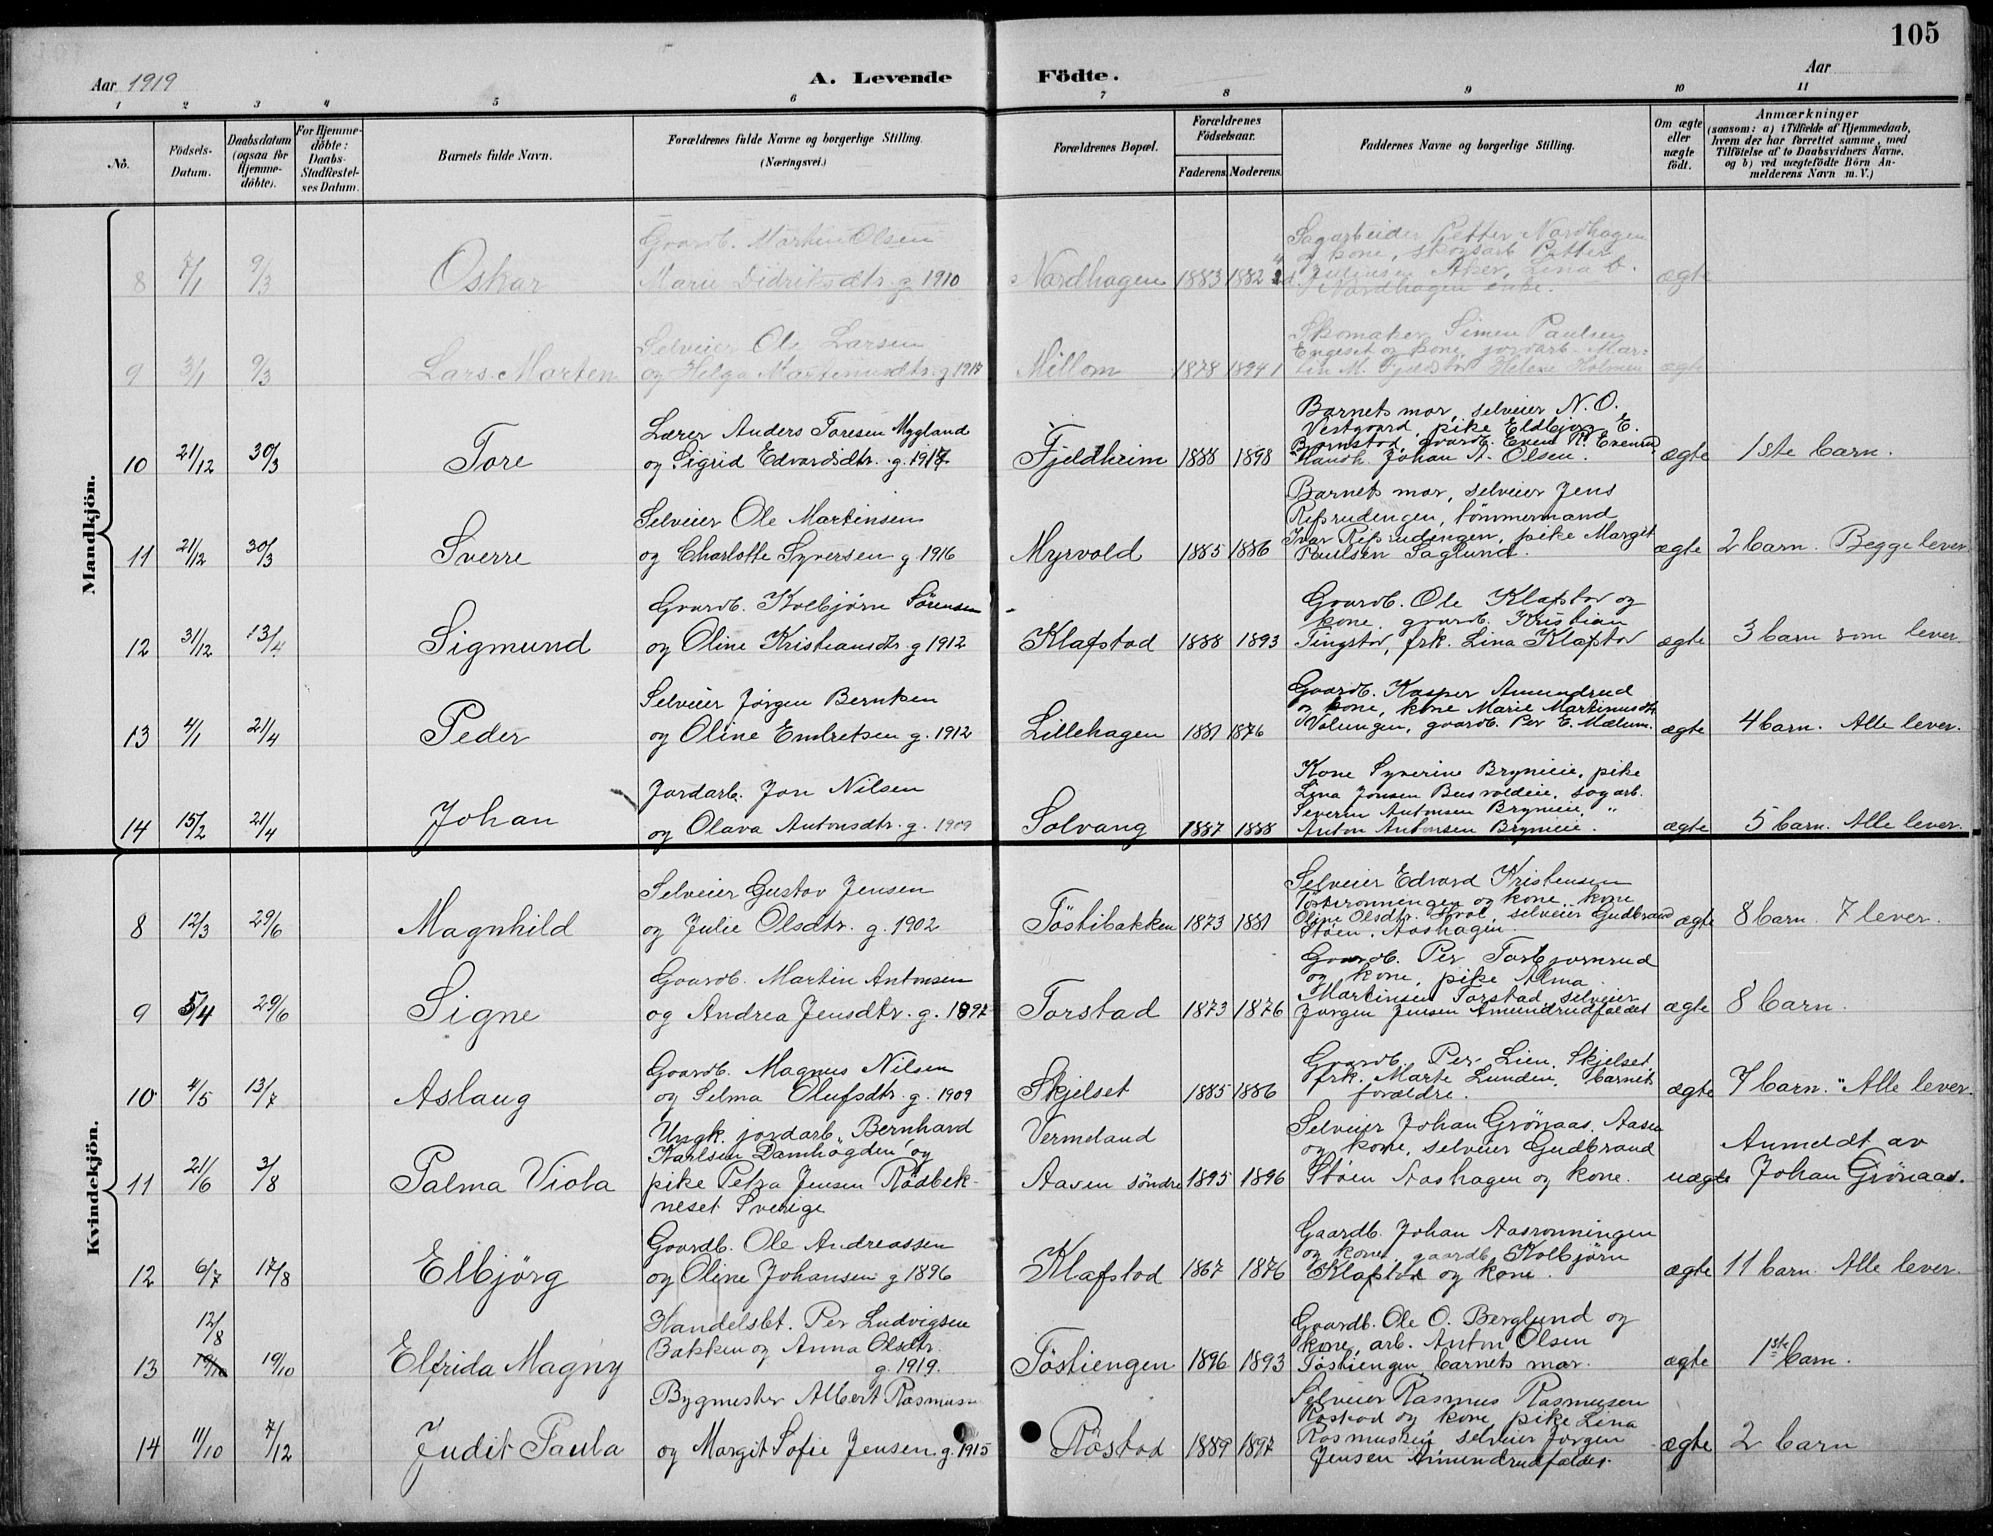 105
Aar 1919
A. Levende Födte.
Aar
1 2 3 4 5 6 7 8 9 10 11
No.
Födsels-Datum.
Daabsdatum (ogsaa for Hjemme-döbte).
For Hjemme-döbte: Daabs-Stadfestel-ses Datum.
Barnets fulde Navn.
Forældrenes fulde Navne og borgerlige Stilling.
(Næringsvei.)
Forældrenes Bopæl.
Forældrenes Födselsaar.
Faderens. Moderens.
Faddernes Navne og borgerlige Stilling.
Om ægte eller uægte födt.
Anmærkninger
(saasom: a) i Tilfælde af Hjemmedaab, hvem der har forrettet samme, med Tilföielse af to Daabsvidners Navne, og b) ved uægtefödte Börn An-melderens Navn m.V.)
Mandkjön.
8 7/1 9/3 Oskar
Gaardb. Martin Olsen
Marie Didriksdtr. g. 1910
Nordhagen 1883 1882
Sagarbeider Petter Nordhagen
og kone, skogsarb. Petter
Julinsen Aker, Lina
Nordhagen enke.
ægte
9 3/1 9/3 Lars Morten
Selveier Ole Larsen
og Helga Martinusdtr. g. 1917
Millom 1878 1894
Skomaker Simen Paulsen
Engeset og kone, jordarb. Mar-
tin M. Fjeldstad Helene Holmen
ægte
10 21/12 30/3 Tore
Lærer Anders Toresen Mygland
og Sigrid Edvardsdtr. g. 1917
Fjeldheim 1888 1898
Barnets mor, selveier N. O.
Vestgaard, pike Eldbjørg E.
Bjørnstad, gaardb. Even P. Evensen
Handh. Johan A. Olsen.
ægte 1ste barn.
11 21/12 30/3 Sverre
Selveier Ole Martinsen
og Charlotte Syversen g. 1916
Myrvold 1885 1886
Barnets mor, selveier Jens
Refsrudengen, tömmermand
Ivar Refsrudengen, pike Margit
Paulsen Saglund.
ægte 2 barn. Begge lever.
12 31/12 13/4 Sigmund
Gaardb. Kolbjørn Sörensen
og Oline Kristiansdtr. g. 1912
Klafstad 1888 1893
Gaardb. Ole Klafstad og
kone, gaardb. Kristian
Tingstad, frk. Lina Klafstad
ægte 3 barn som lever.
13 4/1 21/4 Peder
Selveier Jörgen Berntsen
og Oline Embretsen g. 1912
Lillehagen 1881 1876
Gaardb. Kasper Amundrud
og kone, kone Marie Martinusdtr.
Volungen, gaardb. Per E. Mælum.
ægte 4 barn. Alle lever.
14 15/2 21/4 Johan
Jordarb. Jon Nilsen
og Olava Antonsdtr. g. 1909
Solvang 1887 1888
Kone Syverine Brynieie, pike
Lina Jensen Busvoldeie, sagarb.
Severin Antonsen Brynieie, "
Anton Antonsen Brynieie.
ægte 5 barn. Alle lever.
Kvindekjön.
8 12/3 29/6 Magnhild
Selveier Gustav Jensen
og Julie Olsdtr. g. 1902
Töstibakken 1873 1881
Selveier Edvard Kristensen
og kone, kone
Oline Olsdtr. Hval, selveier Gudbrand
Støen, Aashagen.
ægte 8 barn. 7 lever.
9 5/4 29/6 Signe
Gaardb. Martin Antonsen
og Andrea Jensdtr. g. 1897
Torstad 1873 1876
Gaardb. Per Torbjørnsrud
og kone, pike Alma
Martinsen Torstad, selveier
Jørgen Jensen Amundrudfaldet
ægte 8 barn.
10 4/5 13/7 Aslaug
Gaardb. Magnus Nilsen
og Selma Olufsdtr. g. 1909
Skjelset 1885 1886
Gaardb. Per Lien, Skjelset,
frk. Marte Lunden, barnets
forældre.
ægte 7 barn. Alle lever.
11 21/6 3/8 Palma Viola
Ungk. jordarb. Bernhard
Karlsen Damhøgden, og
pike Petra Jensen Rødbek-
neset Sverige
Vermeland
Aasen søndre 1895 1896
Selveier Johan Grönaas, Aasen
og kone, selveier Gudbrand
Støen Aashagen og kone.
uægte
Anmeldt av
Johan Grönaas.
12 6/7 17/8 Elbjörg
Gaardb. Ole Andreassen
og Oline Johansen g. 1896
Klafstad 1867 1876
Gaardb. Johan Aasrønningen
og kone, gaardb. Kolbjörn
Klafstad og kone.
ægte 11 barn. Alle lever.
13 12/8 19/10 Elfrida Magny
Handelsbt. Per Ludvigsen
Bakken og Anna Olsdtr.
g. 1919.
Töstiengen 1896 1893
Gaardb. Ole O. Berglund og
kone, arb. Anton Olsen
Töstiengen, barnets mor.
ægte 1ste barn.
14 11/10 7/12 Judit Paula
Bygmester Albert Rasmussen
og Margit Sofie Jensen g. 1915
Röstad 1889 1897
Selveier Rasmus Rasmusen
Röstad og kone, pike Lina
Rasmusen, selveier Jørgen
Jensen Amundrudfaldet.
ægte 2 barn